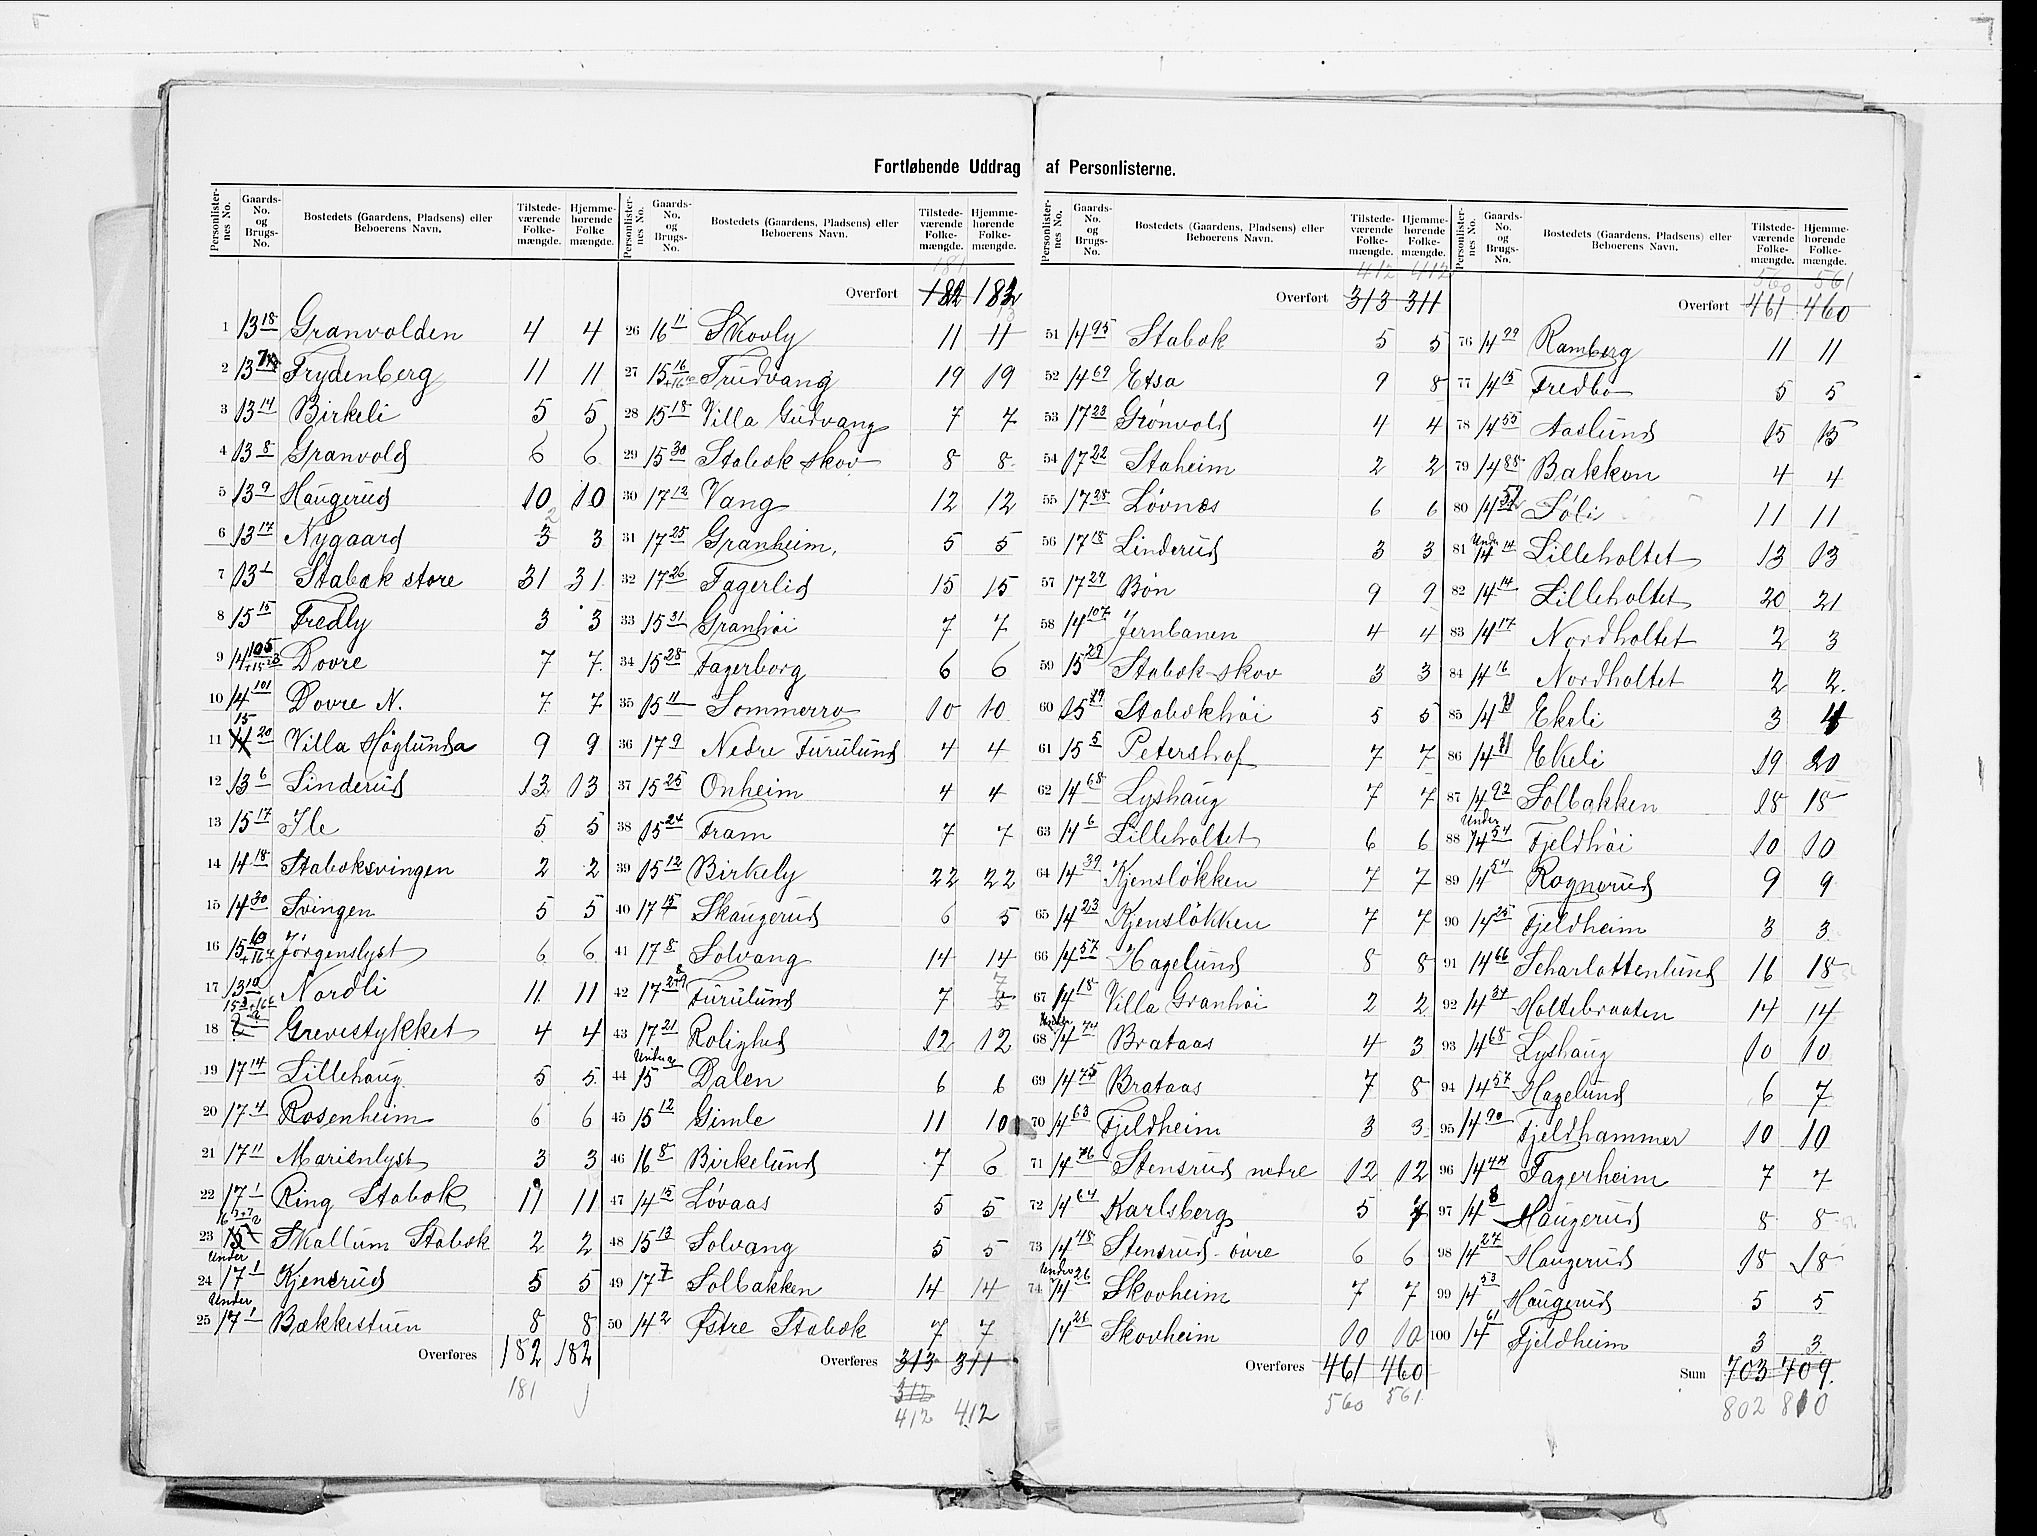 Fortløbende Uddrag af Personlisterne.
Personlister-nes No. Gaards-No. og Brugs-No. Bostedets (Gaardens, Pladsens) eller Beboerens Navn. Tilstede-værende Folke-mængde. Hjemme-hørende Folke-mængde.
1 13 18 Granvolden 4 4
2 13 Frydenberg 11 11
3 13 14 Birkeli 5 5
4 13 8 Granvold 6 6
5 13 9 Haugerud 10 10
6 13 17 Nygaard 3 2 3
7 13 1 Stabæk store 31 31
8 15 15 Fredly 3 3
9 14 105 + 15 23 Dovre 7 7
10 14 101 Dovre N. 7 7
11 15 20 Villa Höglunda 9 9
12 13 6 Linderud 13 13
13 15 17 Ile 5 5
14 14 18 Stabæksvingen 2 2
15 14 30 Svingen 5 5
16 15 + 16 4 Jørgenslyst 6 6
17 13 10 Nordli 11 11
18 Grevestykket 4 4
19 17 14 Lillehaug 5 5
20 17 4 Rosenheim 6 6
21 17 11 Marienlyst 3 3
22 17 1 Ring Stabæk 11 11
23 Skallum Stabæk 2 2
24 Under 17 1 Kjensrud 5 5
25 Under 17 1 Bækkestuen 8 8
Overføres 182 182
181
Personlister-nes No. Gaards-No. og Brugs-No. Bostedets (Gaardens, Pladsens) eller Beboerens Navn. Tilstede-værende Folke-mængde. Hjemme-hørende Folke-mængde.
181
Overført 182 182
26 16 11 Skovly 11 11
27 15 16 + 16 Trudvang 19 19
28 15 18 Villa Gudvang 7 7
29 15 30 Stabæk skov 8 8
30 17 12 Vang 12 12
31 17 25 Granheim 5 5
32 17 26 Fagerlid 15 15
33 15 31 Granhöi 7 7
34 15 28 Fagerborg 6 6
35 15 11 Sommerro 10 10
36 17 9 Nedre Furulund 4 4
37 15 25 Onheim 4 4
38 15 24 Fram 7 7
39 15 12 Birkely 22 22
40 17 15 Skaugerud 6 5
41 17 8 Solvang 14 14
42 17 Furulund 7 7
43 17 21 Rolighed 12 12
44 Under 15 2 Dalen 6 6
45 15 12 Gimle 11 10
46 16 8 Birkelund 7 6
47 14 15 Løvaas 5 5
48 15 13 Solvang 5 5
49 17 7 Solbakken 14 14
50 14 2 Østre Stabæk 7 7
Overføres 313 311
312
412 412
Personlister-nes No. Gaards-No. og Brugs-No. Bostedets (Gaardens, Pladsens) eller Beboerens Navn. Tilstede-værende Folke-mængde. Hjemme-hørende Folke-mængde.
412 412
Overført 313 311
51 14 95 Stabæk 5 5
52 14 69 Etsa 9 8
53 17 23 Grønvold 4 4
54 17 22 Staheim 2 2
55 17 28 Løvnæs 6 6
56 17 18 Linderud 3 3
57 17 29 Bøn 9 9
58 14 107 Jernbanen 4 4
59 15 29 Stabæk skov 3 3
60 15 19 Stabækhöi 5 5
61 15 5 Petershof 7 7
62 14 68 Lyshaug 7 7
63 14 6 Lilleholtet 6 6
64 14 39 Kjensløkken 7 7
65 14 23 Kjensløkken 7 7
66 14 57 Hagelund 8 8
67 14 18 Villa Granhöi 2 2
68 Under 14 74 Brataas 4 3
69 14 75 Brataas 7 8
70 14 63 Fjeldheim 3 3
71 14 76 Stensrud nedre 12 12
72 14 64 Karlsberg 5
73 14 48 Stensrud øvre 6 6
74 Under 14 26 Skovheim 7 7
14 26 Skovheim 10 10
Overføres 461 460
560 561
Personlister-nes No. Gaards-No. og Brugs-No. Bostedets (Gaardens, Pladsens) eller Beboerens Navn. Tilstede-værende Folke-mængde. Hjemme-hørende Folke-mængde.
560 561
Overført 461 460
76 14 29 Ramberg 11 11
77 14 15 Fredbo 5 5
78 14 55 Aaslund 15 15
79 14 88 Bakken 4 4
80 14 Søli 11 11
81 Under 14 14 Lilleholtet 13 13
82 14 14 Lilleholtet 20 21
83 14 17 Nordholtet 2 3
84 14 16 Nordholtet 2 2
85 14 Ekeli 3 4
86 14 Ekeli 19 20
87 14 92 Solbakken 18 18
88 Under 14 54 Fjeldhöi 10 10
89 14 54 Rognerud 9 9
90 14 25 Fjeldheim 3 3
91 14 66 Scharlottenlund 16 18
92 14 34 Holtebraaten 14 14
93 14 68 Lyshaug 10 10
94 14 57 Hagelund 6 7
95 14 90 Fjeldhammer 10 10
96 14 44 Fagerheim 7 7
97 14 8 Haugerud 8 8
98 14 27 Haugerud 18 18
99 14 53 Haugerud 5 5
100 14 61 Fjeldheim 3 3
Sum 703 709
802 810